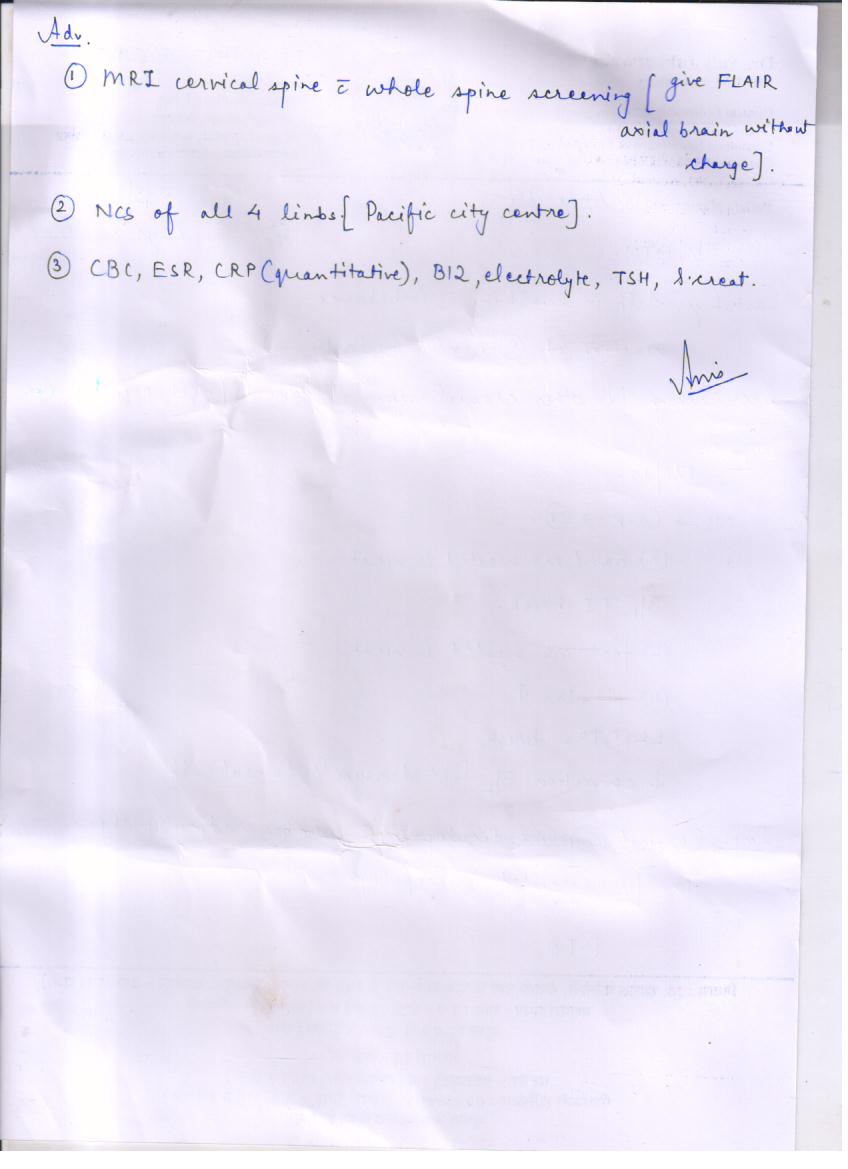 Adv.
① MRI cervical spine c̄ whole spine screening [ give FLAIR
axial brain without
charge].
② NCS of all 4 limbs [ Pacific city centre].
③ CBC, ESR, CRP (quantitative), B12, electrolyte, TSH, S.creat.